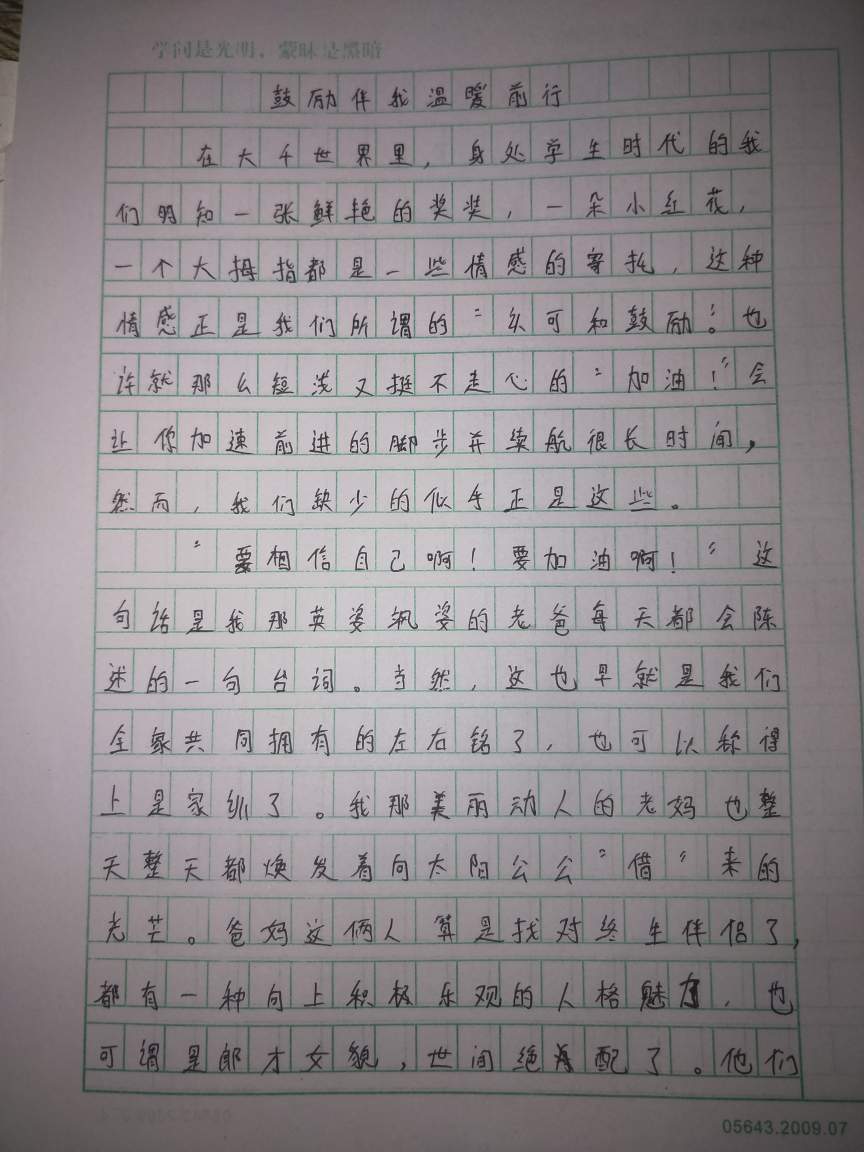 学问是光明，蒙昧是黑暗
鼓励伴我温暖前行
在大千世界里，身处学生时代的我
们明知一张鲜艳的奖奖，一朵小红花，
一个大拇指都是一些情感的寄托，这种
情感正是我们所谓的“认可和鼓励”。也
许就那么短浅又挺不走心的“加油！”会
让你加速前进的脚步并续航很长时间，
然而，我们缺少的似乎正是这些。
“要相信自己啊！要加油啊！”这
句话是我那英姿飒姿的老爸每天都会陈
述的一句台词。当然，这也早就是我们
全家共同拥有的左右铭了，也可以称得
上是家训了。我那美丽动人的老妈也整
天整天都焕发着向太阳公公“借”来的
光芒。爸妈这俩人算是找对终生伴侣了，
都有一种向上积极乐观的人格魅力，也
可谓是郎才女貌，世间绝配了。他们
05643.2009.07